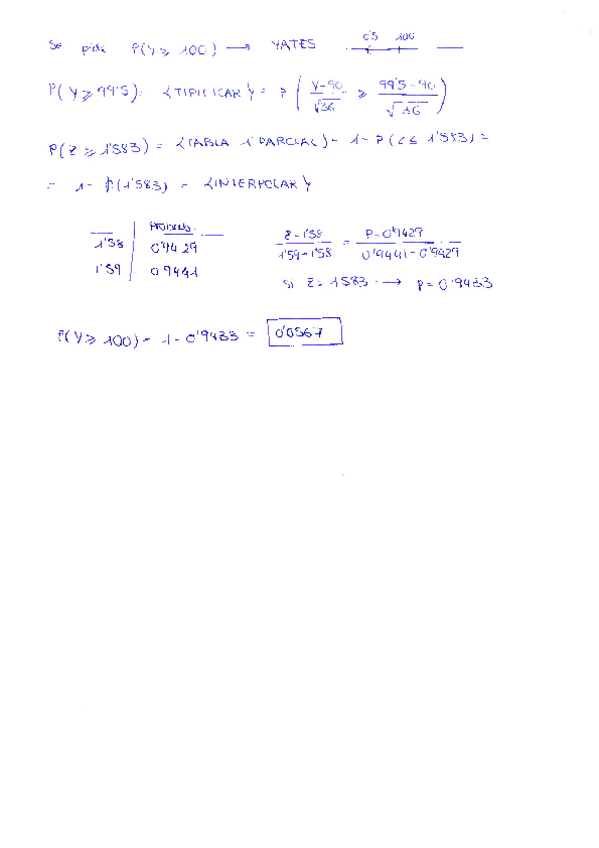 Se pide P(Y ≥ 100) → YATES 0'5 100
P(Y ≥ 99'5) = {TIPIFICAR} = P ( (Y-90)/√36 ≥ (99'5-90)/√36 )
P(Z ≥ 1'583) = {TABLA 1 PARCIAL} = 1 - P(Z ≤ 1'583) =
= 1 - P(1'583) = {INTERPOLAR}
1'58 0'9429
1'59 0'9441
(Z-1'58)/(1'59-1'58) = (P-0'9429)/(0'9441-0'9429)
Si Z = 1'583 → P = 0'9433
P(Y ≥ 100) = 1 - 0'9433 = 0'0567